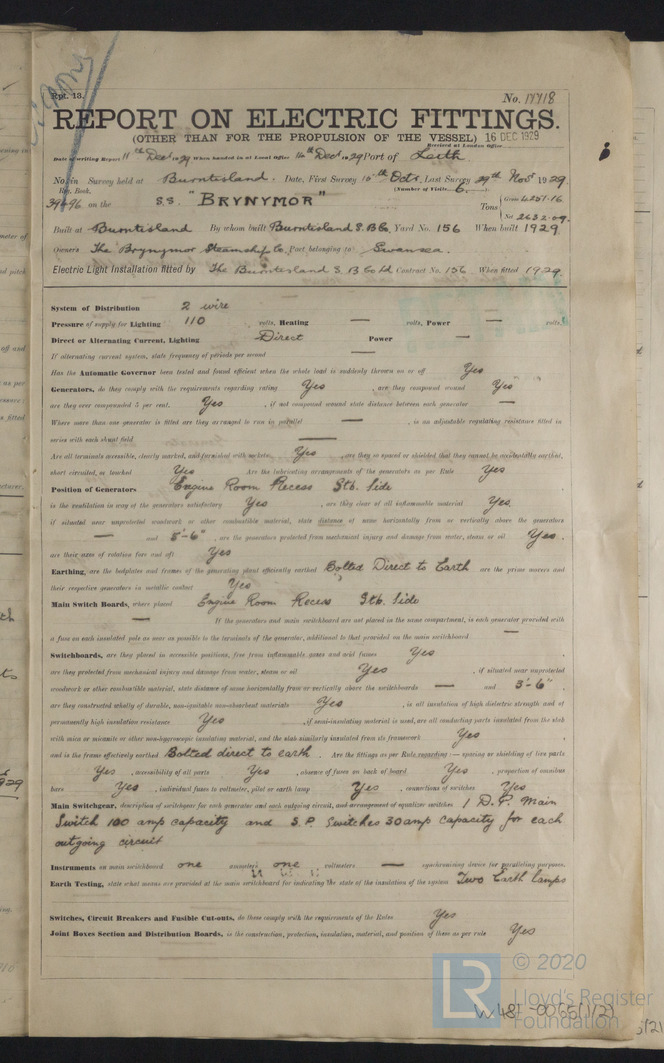 Rpt. 13.
No. 17718
REPORT ON ELECTRIC FITTINGS.
(OTHER THAN FOR THE PROPULSION OF THE VESSEL) 16 DEC 1929
Received at London Office
Date of writing Report 11th Dec 1929 When handed in at Local Office 14th Dec 1929 Port of Leith
No. in Survey held at Burntisland. Date, First Survey 15th Oct. Last Survey 29th Nov 1929.
Reg. Book. (Number of Visits 6.)
39496 on the S.S. "BRYNYMOR" Tons { Gross 4257.16
Net 2632.09
Built at Burntisland By whom built Burntisland S.B.Co. Yard No. 156 When built 1929
Owners The Brynymor Steamship Co. Port belonging to Swansea.
Electric Light Installation fitted by The Burntisland S B Co Ltd Contract No. 156 When fitted 1929
System of Distribution 2 wire
Pressure of supply for Lighting 110 volts, Heating — volts, Power — volts.
Direct or Alternating Current, Lighting Direct Power —
If alternating current system, state frequency of periods per second —
Has the Automatic Governor been tested and found efficient when the whole load is suddenly thrown on or off Yes
Generators, do they comply with the requirements regarding rating Yes, are they compound wound Yes
are they over compounded 5 per cent. Yes, if not compound wound state distance between each generator —
Where more than one generator is fitted are they arranged to run in parallel —, is an adjustable regulating resistance fitted in
series with each shunt field —
Are all terminals accessible, clearly marked, and furnished with sockets Yes, are they so spaced or shielded that they cannot be accidentally earthed,
short circuited, or touched Yes Are the lubricating arrangements of the generators as per Rule Yes
Position of Generators Engine Room Recess Stb. Side
is the ventilation in way of the generators satisfactory Yes, are they clear of all inflammable material Yes.
if situated near unprotected woodwork or other combustible material, state distance of same horizontally from or vertically above the generators
— and 5'-6", are the generators protected from mechanical injury and damage from water, steam or oil Yes.
are their axes of rotation fore and aft Yes
Earthing, are the bedplates and frames of the generating plant efficiently earthed Bolted Direct to Earth are the prime movers and
their respective generators in metallic contact Yes
Main Switch Boards, where placed Engine Room Recess Stb. Side
— If the generators and main switchboard are not placed in the same compartment, is each generator provided with
a fuse on each insulated pole as near as possible to the terminals of the generator, additional to that provided on the main switchboard —
Switchboards, are they placed in accessible positions, free from inflammable gases and acid fumes Yes
are they protected from mechanical injury and damage from water, steam or oil Yes, if situated near unprotected
woodwork or other combustible material, state distance of same horizontally from or vertically above the switchboards — and 3'-6",
are they constructed wholly of durable, non-ignitable non-absorbent materials Yes, is all insulation of high dielectric strength and of
permanently high insulation resistance Yes, if semi-insulating material is used, are all conducting parts insulated from the slab
with mica or micanite or other non-hygroscopic insulating material, and the slab similarly insulated from its framework Yes,
and is the frame effectively earthed Bolted direct to earth. Are the fittings as per Rule regarding:— spacing or shielding of live parts
Yes, accessibility of all parts Yes, absence of fuses on back of board Yes, proportion of omnibus
bars Yes, individual fuses to voltmeter, pilot or earth lamp Yes, connections of switches Yes
Main Switchgear, description of switchgear for each generator and each outgoing circuit, and arrangement of equalizer switches 1 D.P. Main
Switch 100 amp capacity and S.P. Switches 30 amp capacity for each
outgoing circuit
Instruments on main switchboard one ammeters one voltmeters — synchronising device for paralleling purposes.
Earth Testing, state what means are provided at the main switchboard for indicating the state of the insulation of the system Two Earth lamps
Switches, Circuit Breakers and Fusible Cut-outs, do these comply with the requirements of the Rules Yes
Joint Boxes Section and Distribution Boards, is the construction, protection, insulation, material, and position of these as per rule Yes
© 2020
LR Lloyd's Register
Foundation
W487-0065(1/2)